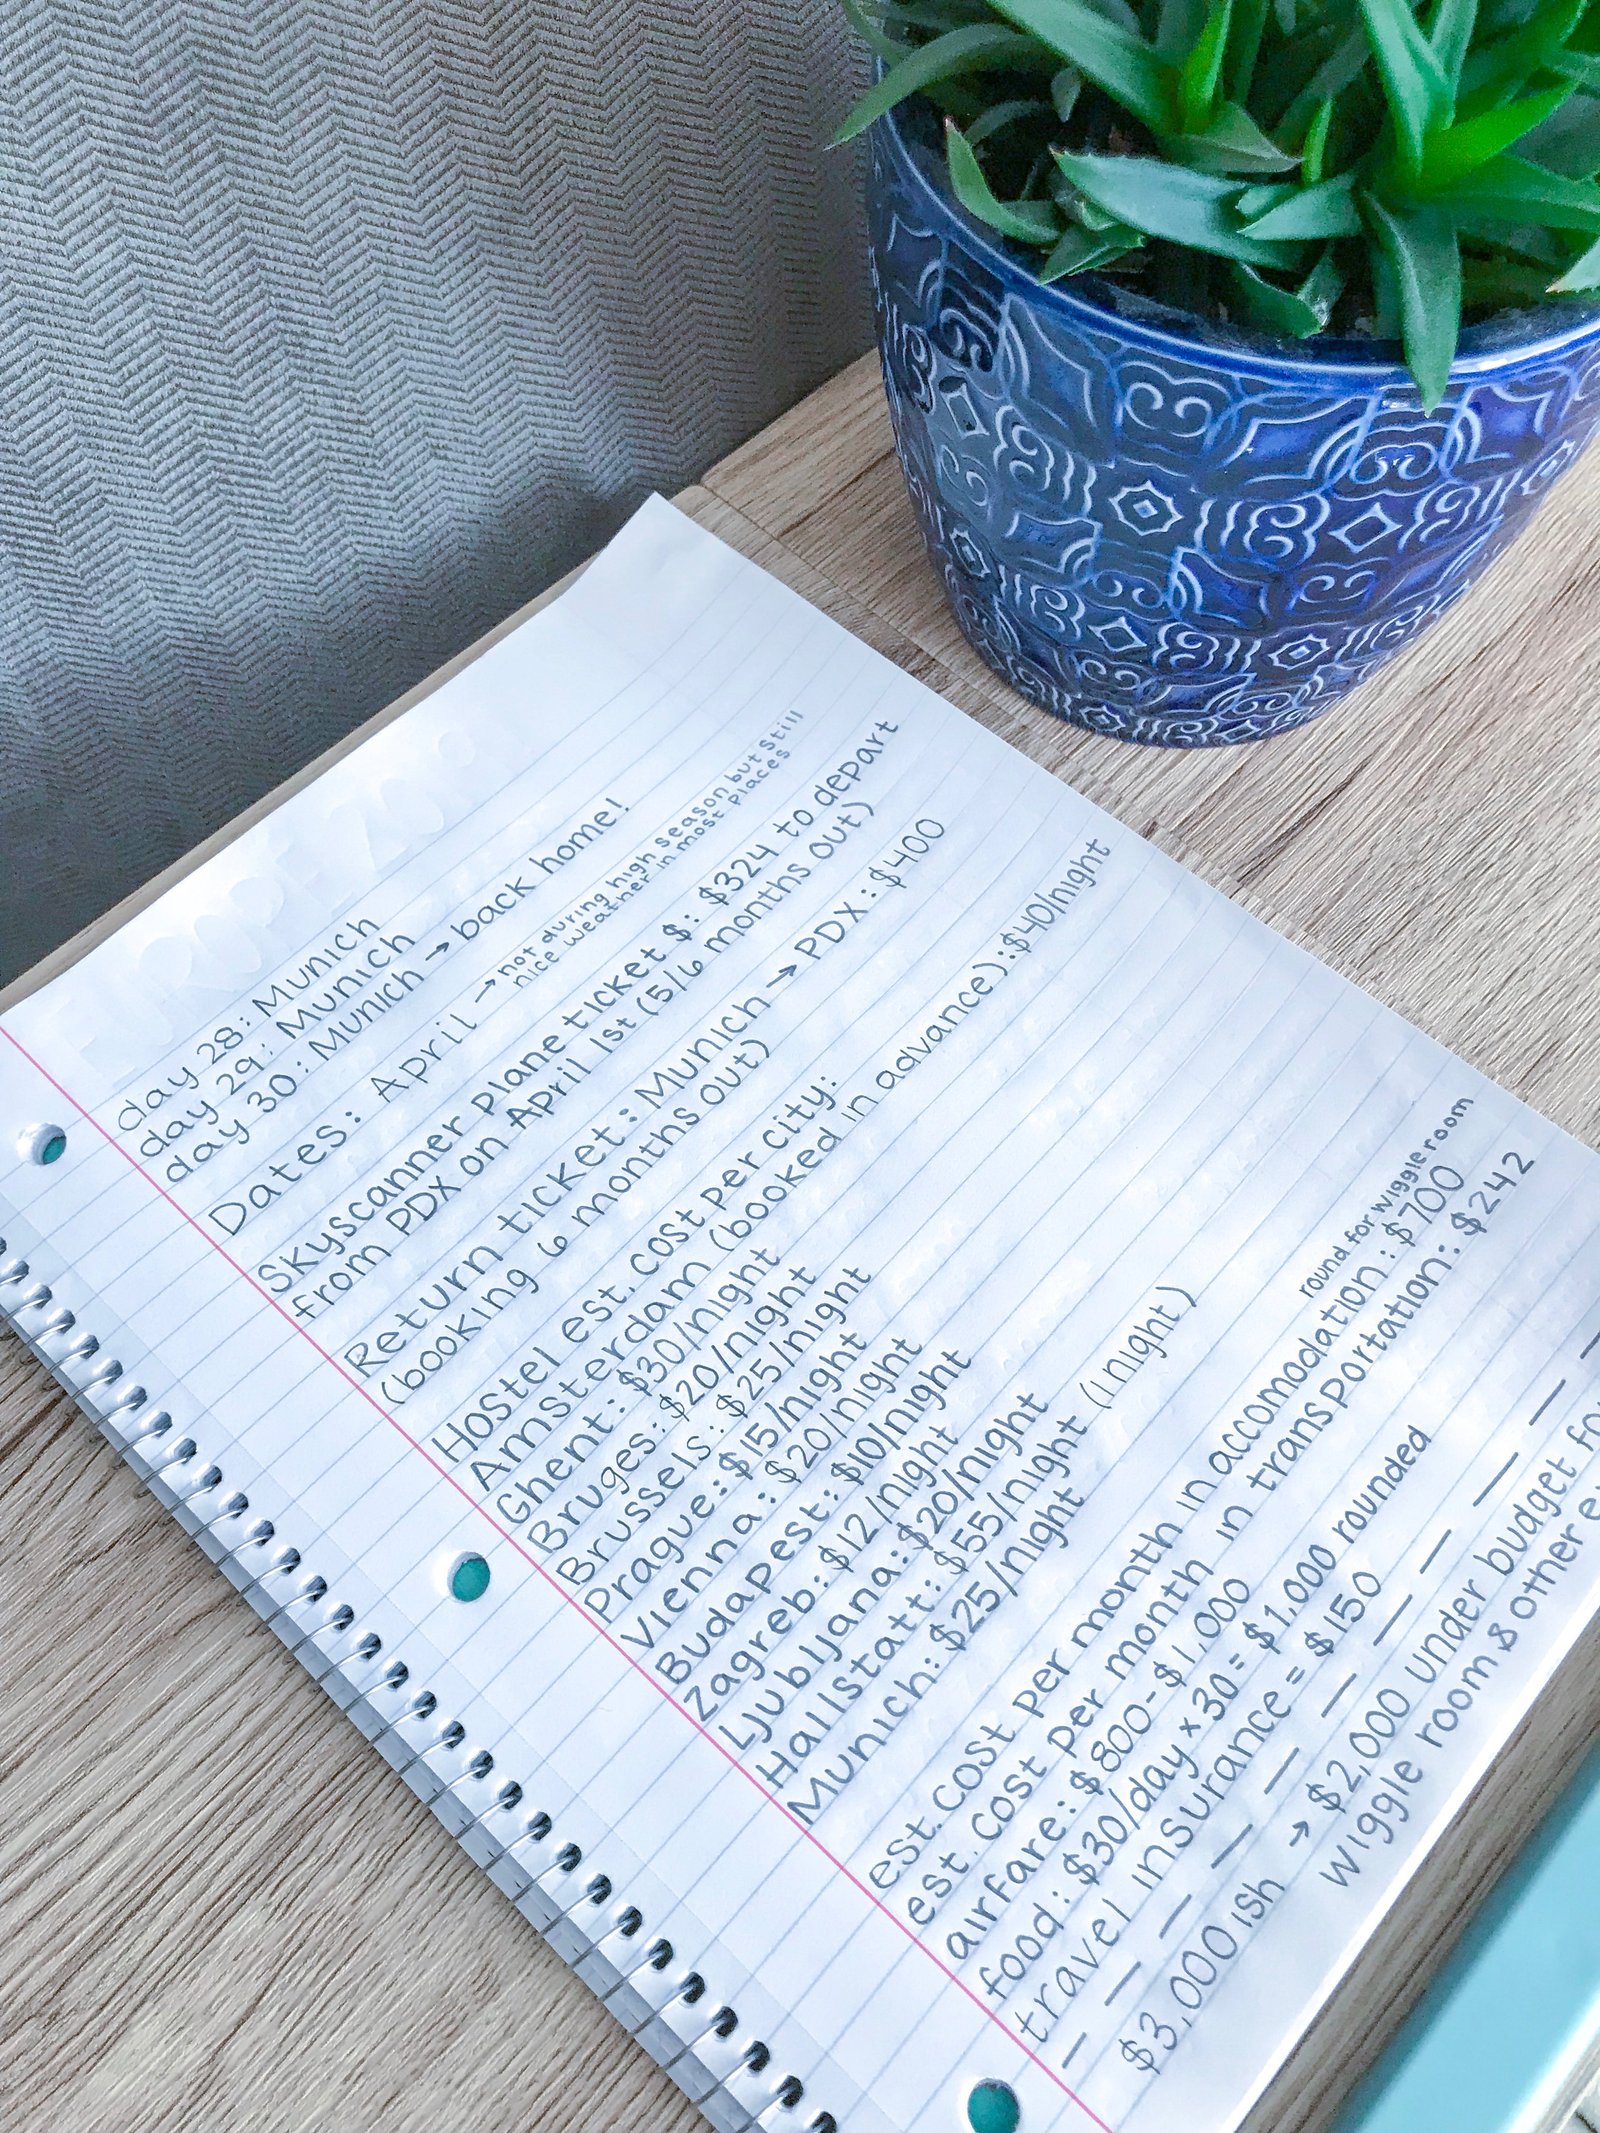 day 28: Munich
day 29: Munich
day 30: Munich → back home!
Dates: April → not during high season but still
nice weather in most places
Skyscanner plane ticket $: $324 to depart
from PDX on April 1st (5/6 months out)
Return ticket: Munich → PDX: $400
(booking 6 months out)
Hostel est. cost per city:
Amsterdam (booked in advance): $40/night
Ghent: $30/night
Bruges: $20/night
Brussels: $25/night
Prague: $15/night
Vienna: $20/night
Budapest: $10/night
Zagreb: $12/night
Ljubljana: $20/night
Hallstatt: $55/night (1 night)
Munich: $25/night
round for wiggle room
est. cost per month in accomodation: $700
est. cost per month in transportation: $242
airfare: $800-$1,000
food: $30/day × 30 = $1,000 rounded
travel insurance = $150
$3,000 ish → $2,000 under budget
wiggle room & other